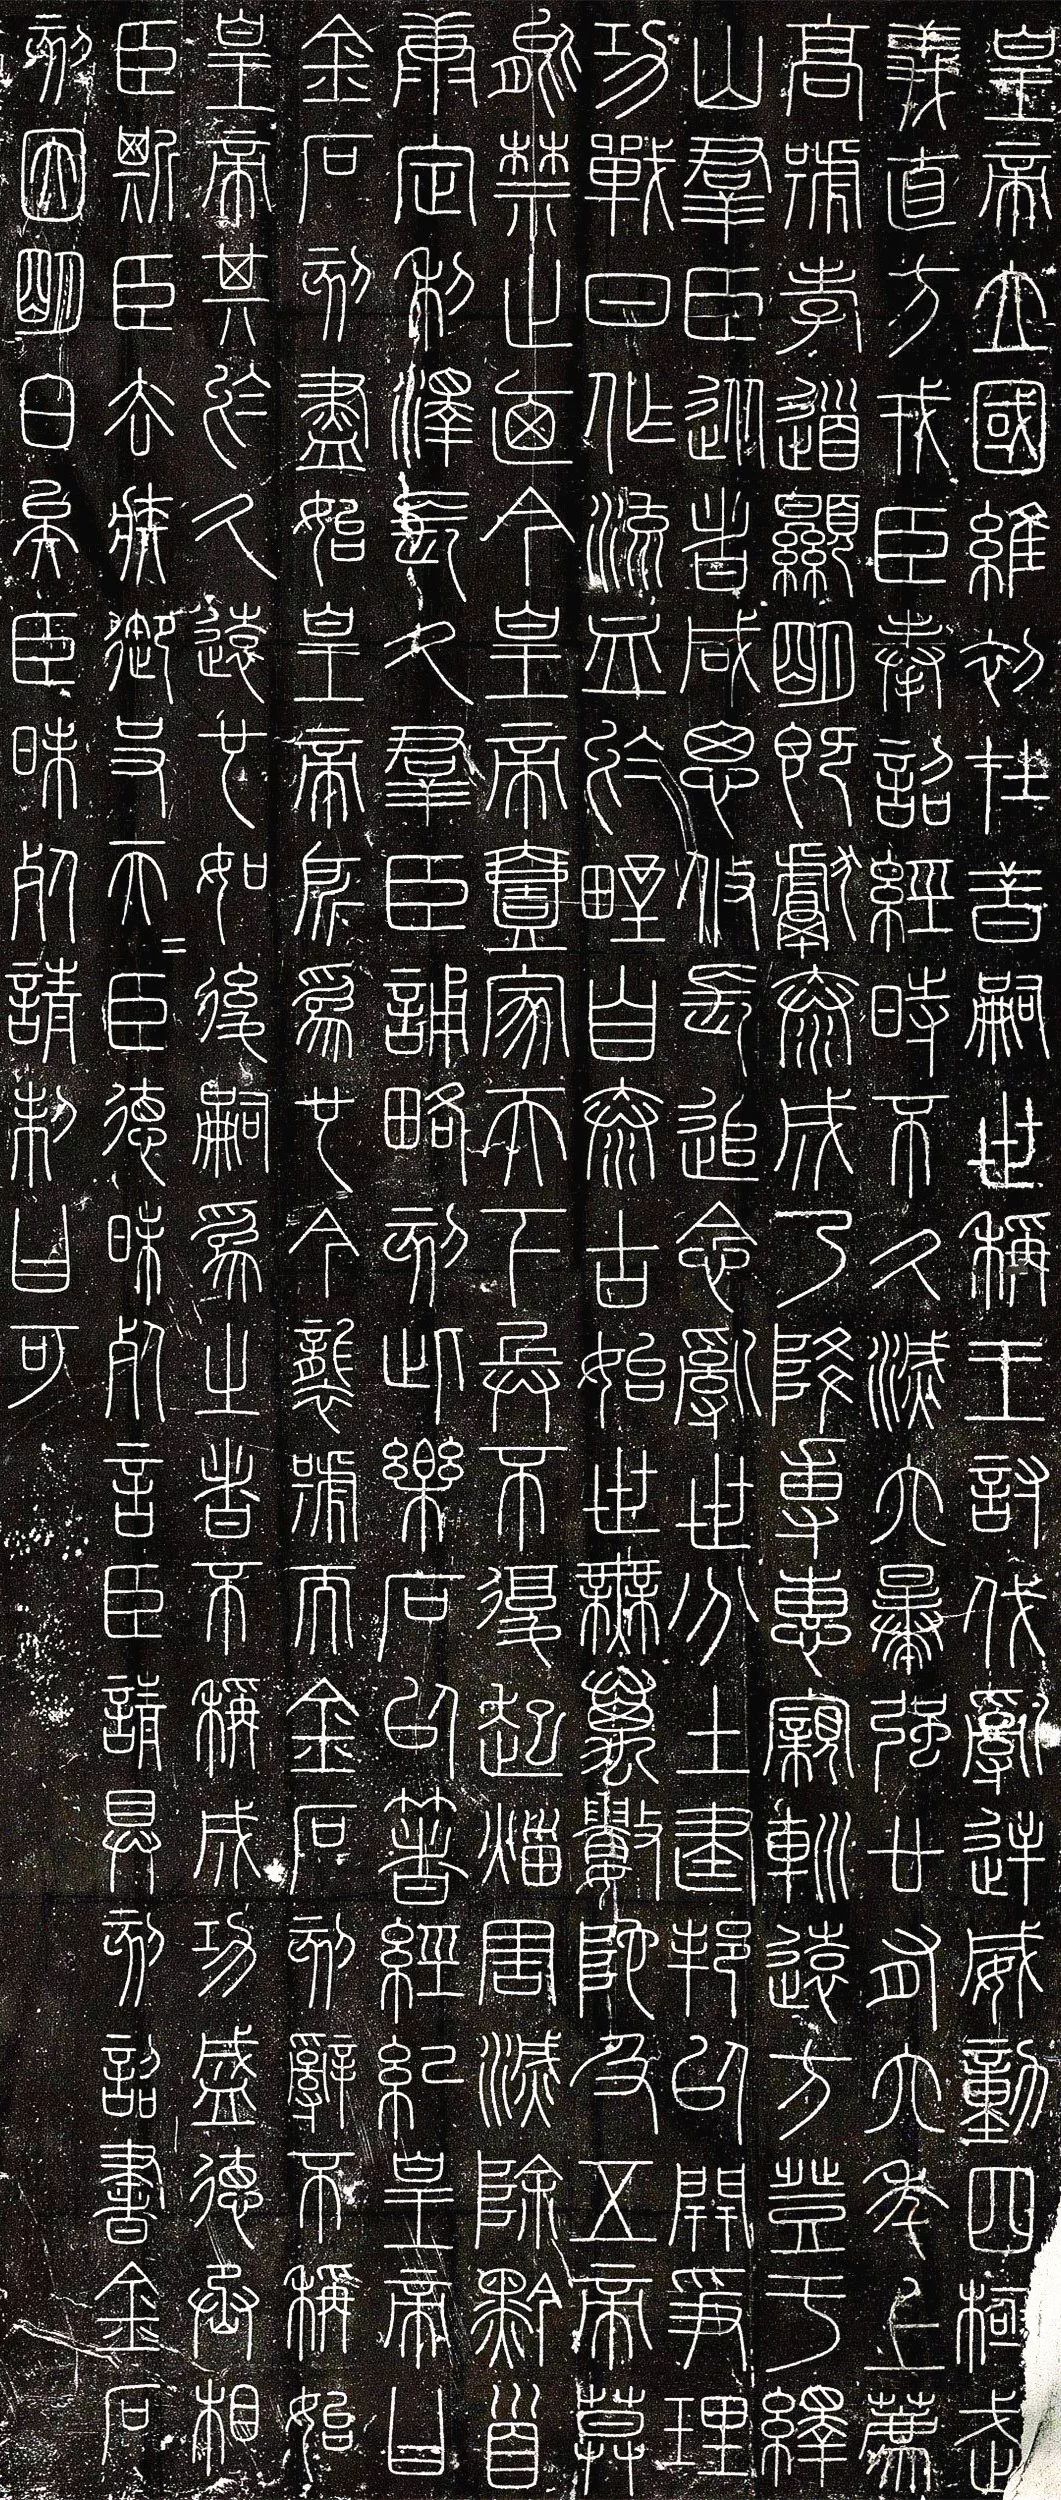 皇帝立國維初在昔嗣世稱王討伐亂逆威動四極武
義直方戎臣奉詔經時不久滅六暴強廿有六年上薦
高號孝道顯明既獻泰成乃降專惠親巡遠方登于繹
山羣臣從者咸思攸長追念亂世分土建邦以開爭理
功戰日作流血於野自泰古始世無萬數陀及五帝莫
能禁止廼今皇帝壹家天下兵不復起災害滅除黔首
康定利澤長久羣臣誦略刻此樂石以著經紀皇帝曰
金石刻盡始皇帝所爲也今襲號而金石刻辭不稱始
皇帝其於久遠也如後嗣爲之者不稱成功盛德丞相
臣斯臣去疾御史夫=臣德昧死言臣請具刻詔書金石
刻因明白矣臣昧死請制曰可